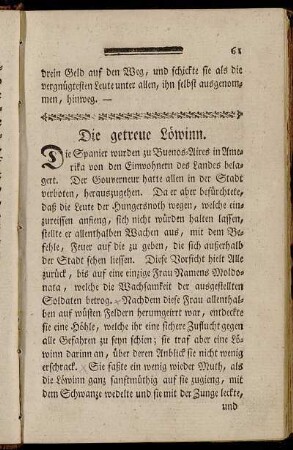 61
drein Geld auf den Weg, und schickte sie als die
vergnügtesten Leute unter allen, ihn selbst ausgenom-
men, hinweg. —
Die getreue Löwinn.
Die Spanier wurden zu Buenos-Aires in Ame-
rika von den Einwohnern des Landes bela-
gert. Der Gouverneur hatte allen in der Stadt
verboten, herauszugehen. Da er aber befürchtete,
daß die Leute der Hungersnoth wegen, welche ein-
zureissen anfieng, sich nicht würden halten lassen,
stellte er allenthalben Wachen aus, mit dem Be-
fehle, Feuer auf die zu geben, die sich außerhalb
der Stadt sehen liessen. Diese Vorsicht hielt Alle
zurück, bis auf eine einzige Frau Namens Moldo-
nata, welche die Wachsamkeit der ausgestellten
Soldaten betrog. Nachdem diese Frau allenthal-
ben auf wüsten Feldern herumgeirrt war, entdeckte
sie eine Höhle, welche ihr eine sichere Zuflucht gegen
alle Gefahren zu seyn schien; sie traf aber eine Lö-
winn darinn an, über deren Anblick sie nicht wenig
erschrack. Sie faßte ein wenig wieder Muth, als
die Löwinn ganz sanftmüthig auf sie zugieng, mit
dem Schwanze wedelte und sie mit der Zunge leckte,
und